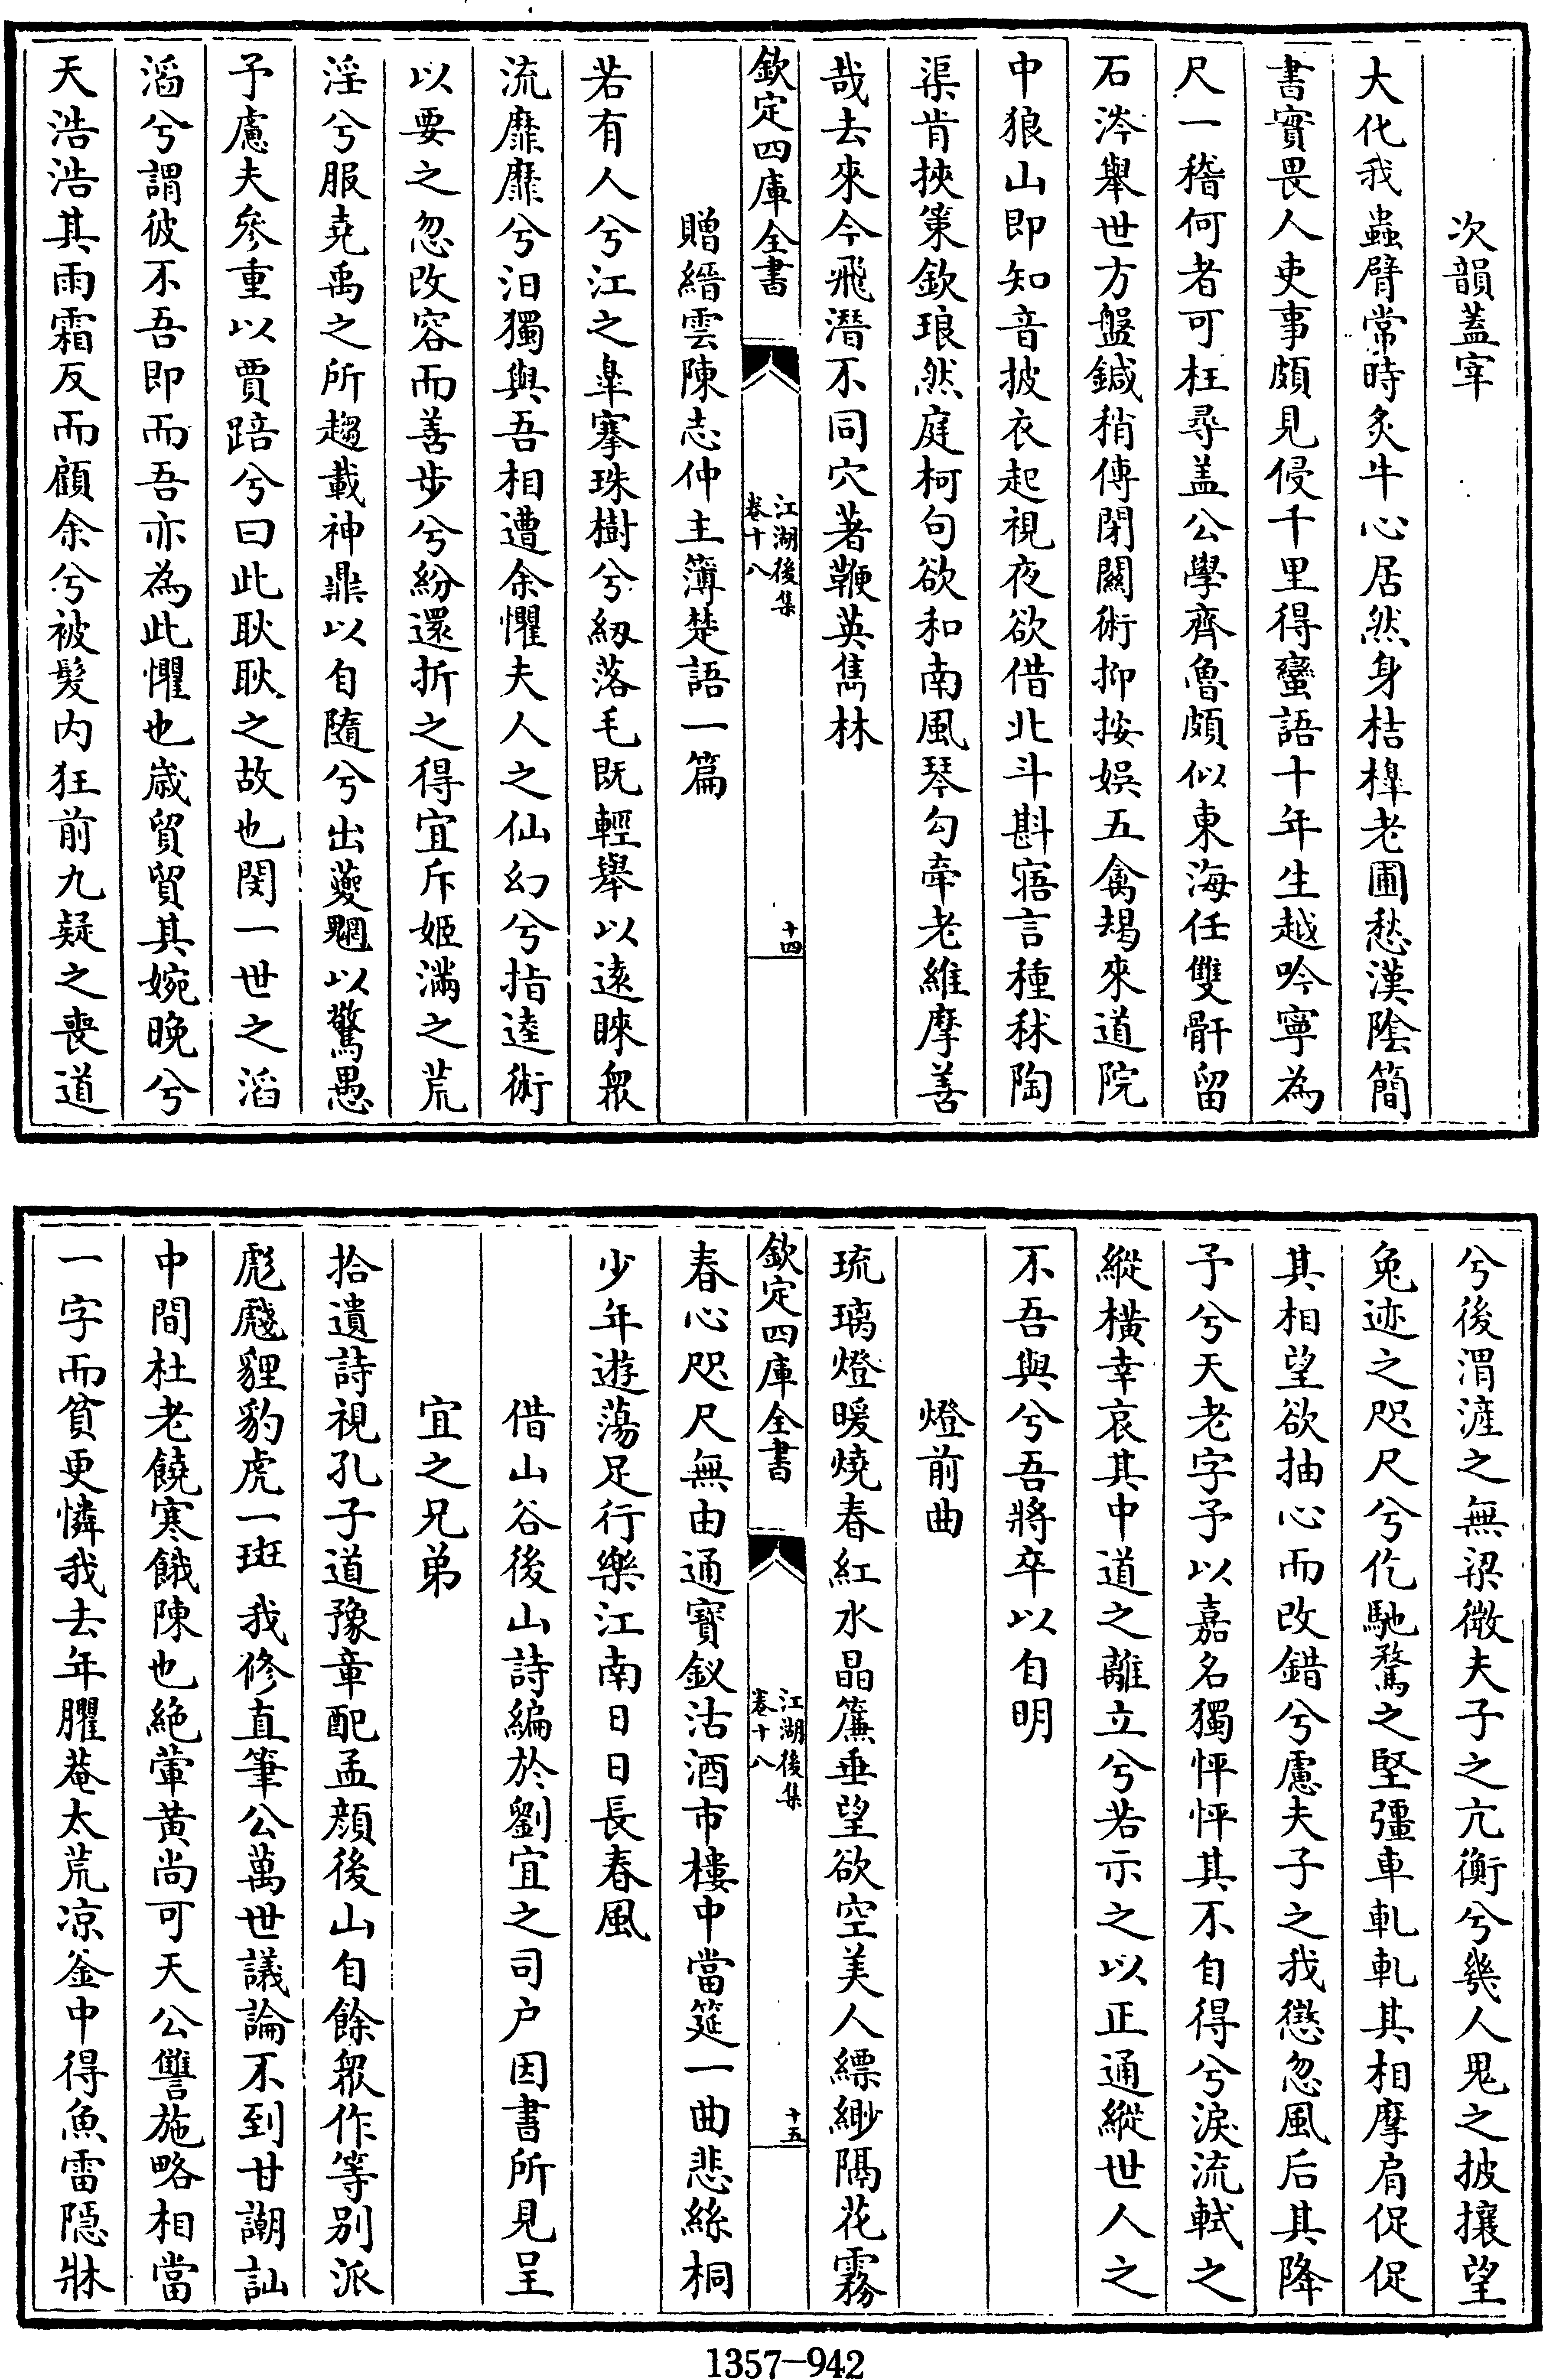 次韻蓋宰
大化我蟲臂常時炙牛心居然身桔槹老圃愁漢隂簡
書實畏人吏事頗見侵千里得蠻語十年生越吟寧為
尺一稽何者可枉尋盖公學齊魯頗似東海任雙骭留
石涔舉世方盤鍼稍傳閉關術抑按娯五禽朅來道院
中狼山即知音披衣起視夜欲借北斗斟寤言種秫陶
渠肯挾䇿欽琅然庭柯句欲和南風琴勾牽老維摩善
哉去來今飛潛不同穴著鞭英雋林
欽定四庫全書
江湖後集
卷十八
十四
贈縉雲陳志仲主簿楚語一篇
若有人兮江之臯搴珠樹兮紉落毛既輕舉以遠睞衆
流靡靡兮汨獨與吾相遭余懼夫人之仙幻兮指逵術
以要之忽改容而善步兮紛還折之得宜斥姬滿之荒
淫兮服堯禹之所趨載神鼎以自隨兮出夔魍以驚愚
予慮夫參重以賈踣兮曰此耿耿之故也閔一世之滔
滔兮謂彼不吾即而吾亦為此懼也歳貿貿其婉晩兮
天浩浩其雨霜反而顧余兮被髮内狂前九疑之喪道
兮後渭滻之無梁微夫子之亢衡兮幾人鬼之披攘望
兔迹之咫尺兮仡馳騖之堅彊車軋軋其相摩肩促促
其相望欲抽心而改錯兮慮夫子之我懲忽風后其降
予兮天老字予以嘉名獨怦怦其不自得兮淚流軾之
縱横幸哀其中道之離立兮若示之以正通縱世人之
不吾與兮吾將卒以自明
燈前曲
琉璃燈暖燒春紅水晶簾垂望欲空美人縹緲隔花霧
欽定四庫全書
江湖後集
卷十八
十五
春心咫尺無由通寳釵沽酒市樓中當筵一曲悲絲桐
少年遊蕩足行樂江南日日長春風
借山谷後山詩編於劉宜之司户因書所見呈
宜之兄弟
拾遺詩視孔子道豫章配孟顔後山自餘衆作等别派
彪虥貍豹虎一斑我修直筆公萬世議論不到甘謿訕
中間杜老饒寒餓陳也絶葷黄尚可天公讐施略相當
一字而貧更憐我去年臞菴太荒凉釜中得魚雷隠牀
1357-942